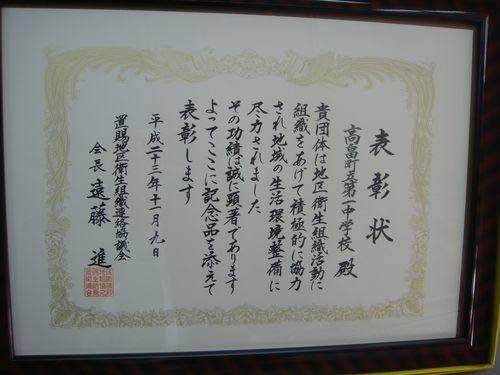 表彰状
高畠町立第一中学校 殿
貴団体は地区衛生組織活動に
組織をあげて積極的に協力
され地域の生活環境整備に
尽力されました
その功績は誠に顕著であります
よってここに記念品を添えて
表彰します
平成二十三年十一月九日
置賜地区衛生組織連絡協議会
会長 遠藤 進